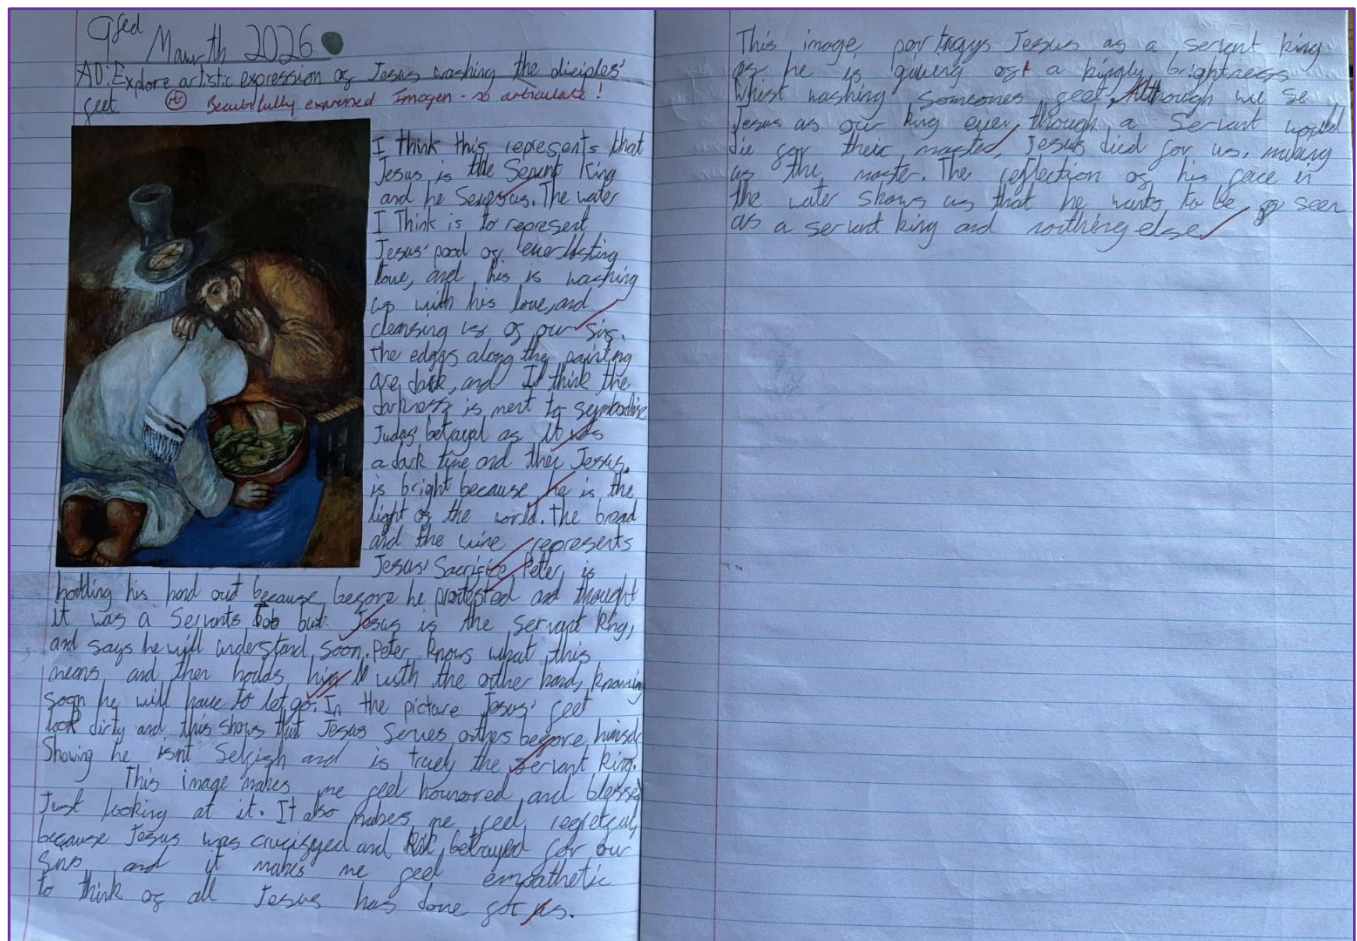 9fed Mawrth 2026
AD: Explore artistic expression of Jesus washing the disciples'
feet
Beautifully expressed Imogen - so articulate!
I think this represents that
Jesus is the Servant King
and he Serves us. The water
I Think is to represent
Jesus' pool of everlasting
love, and his is washing
us with his love, and
cleansing us of our Sins.
the edges along the painting
are dark, and I think the
darkness is ment to symbolise
Judas' betrayal as it was
a dark time and then Jesus
is bright because he is the
light of the world. The bread
and the wine represents
Jesus' Sacrifice. Peter is
holding his hand out because before he protested and thought
it was a Servants but Jesus is the servant King,
and says he will understand soon. Peter knows what this
means and then holds him with the other hand, knowing
soon he will have to let go. In the picture Jesus' feet
look dirty and this shows that Jesus serves others before himself
Showing he isnt Selfish and is truely the servant king.
This image makes me feel honoured and blessed
Just looking at it. It also makes me feel regretful
because Jesus was crucified and betrayed for our
Sins and it makes me feel empathetic
to think of all Jesus has done for us.
This image portrays Jesus as a servant king
as he is giving off a kingly brightness
whilst washing someones feet. Although we se
Jesus as our king even though a Servant would
die for their master, Jesus died for us, making
us the master. The reflection of his face in
the water shows us that he wants to be seen
as a servant king and nothing else.